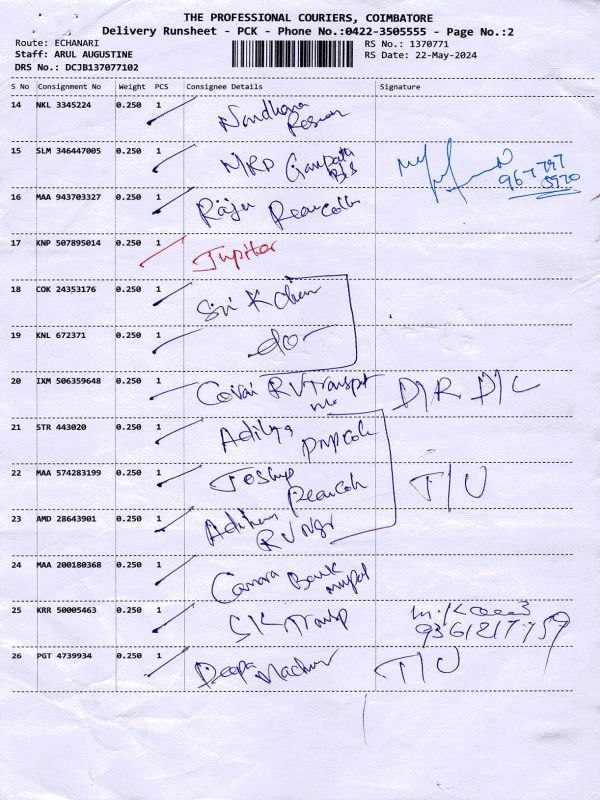 THE PROFESSIONAL COURIERS, COIMBATORE
Delivery Runsheet - PCK - Phone No.:0422-3505555 - Page No.:2
Route: ECHANARI
RS No.: 1370771
Staff: ARUL AUGUSTINE
RS Date: 22-May-2024
DRS No.: DCJB137077102
S No Consignment No Weight PCS Consignee Details Signature
14 NKL 3345224 0.250 1
15 SLM 346447005 0.250 1 MRP
16 MAA 943703327 0.250 1 Raju
17 KNP 507895014 0.250 1 Jupiter
18 COK 24353176 0.250 1 Sri K
19 KNL 672371 0.250 1 do
20 IXM 506359648 0.250 1 Covai RV Transpt D/R D/L
21 STR 443020 0.250 1 Aditya
22 MAA 574283199 0.250 1 T/U
23 AMD 28643901 0.250 1
24 MAA 200180368 0.250 1 Canara Bank
25 KRR 50005463 0.250 1 SK Transp
26 PGT 4739934 0.250 1 Deepa T/U